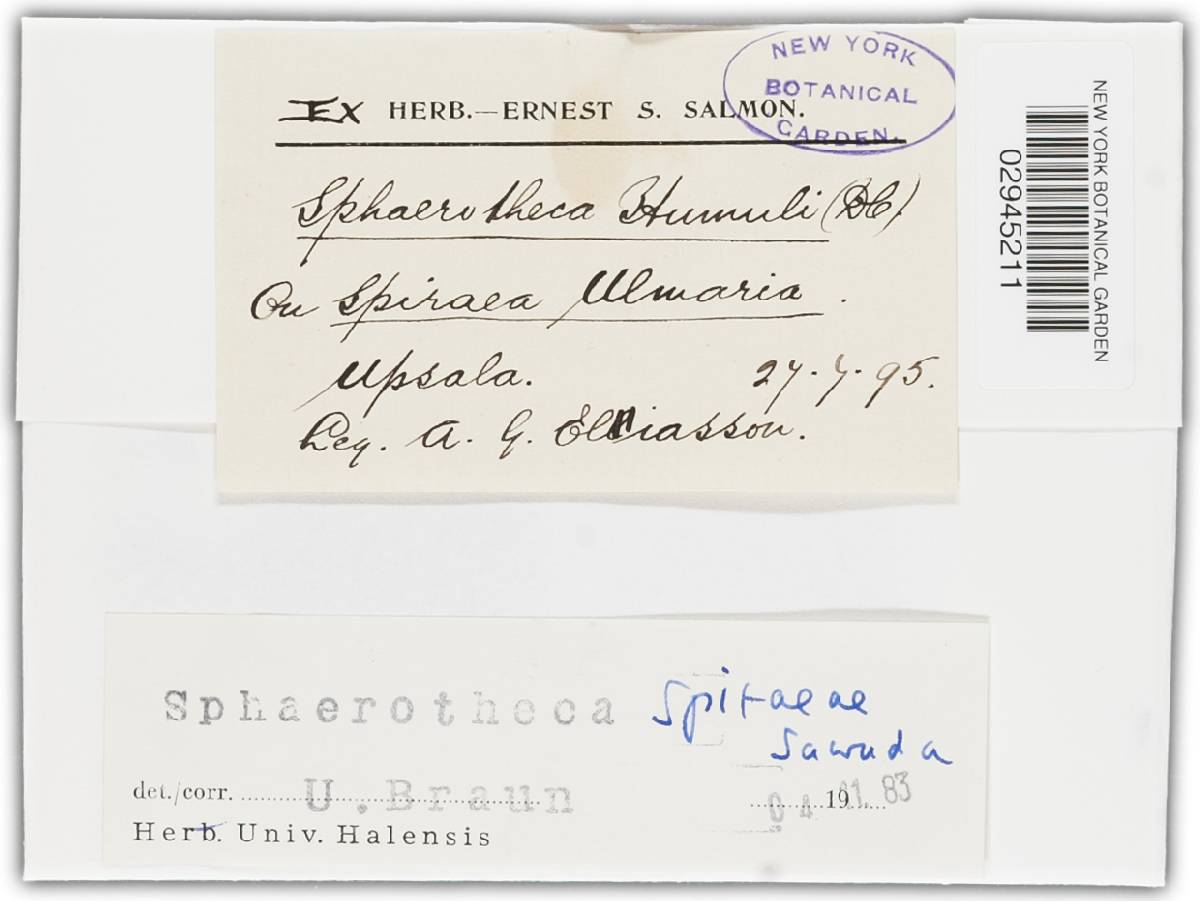 NEW YORK
BOTANICAL
GARDEN.
EX HERB.—ERNEST S. SALMON.
Sphaerotheca Humuli (DC)
On Spiraea Ulmaria.
Upsala. 27.7.95.
Leg. A. G. Eliasson.
NEW YORK BOTANICAL GARDEN
02945211
Sphaerotheca spiraeae
Sawada
det./corr. U. Braun 04 1901. 83
Herb. Univ. Halensis